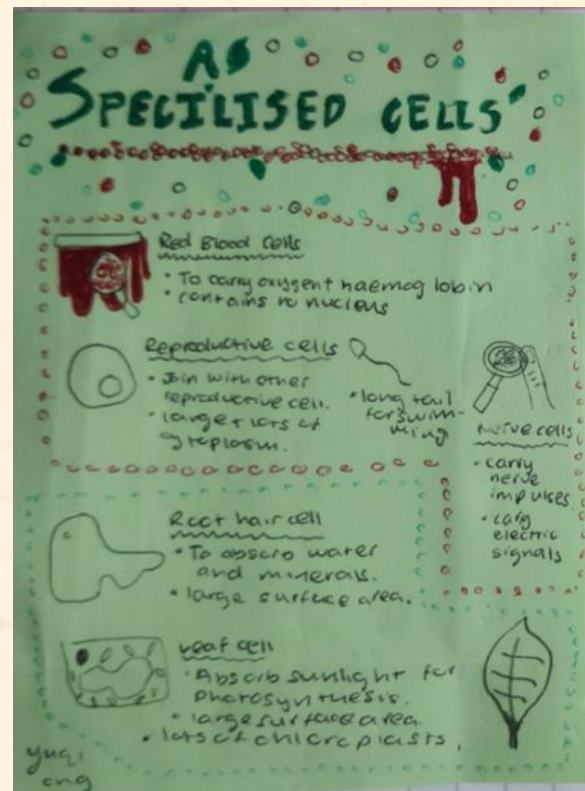 AS
SPECILISED CELLS
Red Blood Cells
• To carry oxygent haemog lobin
• contains no nucleus
Reproductive cells
• Join with other
reproductive cell.
• large + lots of
cytoplasm.
• long tail
for swim-
ming
nerve cells
• carry
nerve
impulses
• carry
electric
signals
Root hair cell
• To absorb water
and minerals.
• large surface area.
Leaf cell
• Absorb sunlight for
photosynthesis.
• large surface area.
• lots of chloroplasts.
yuqi
ong